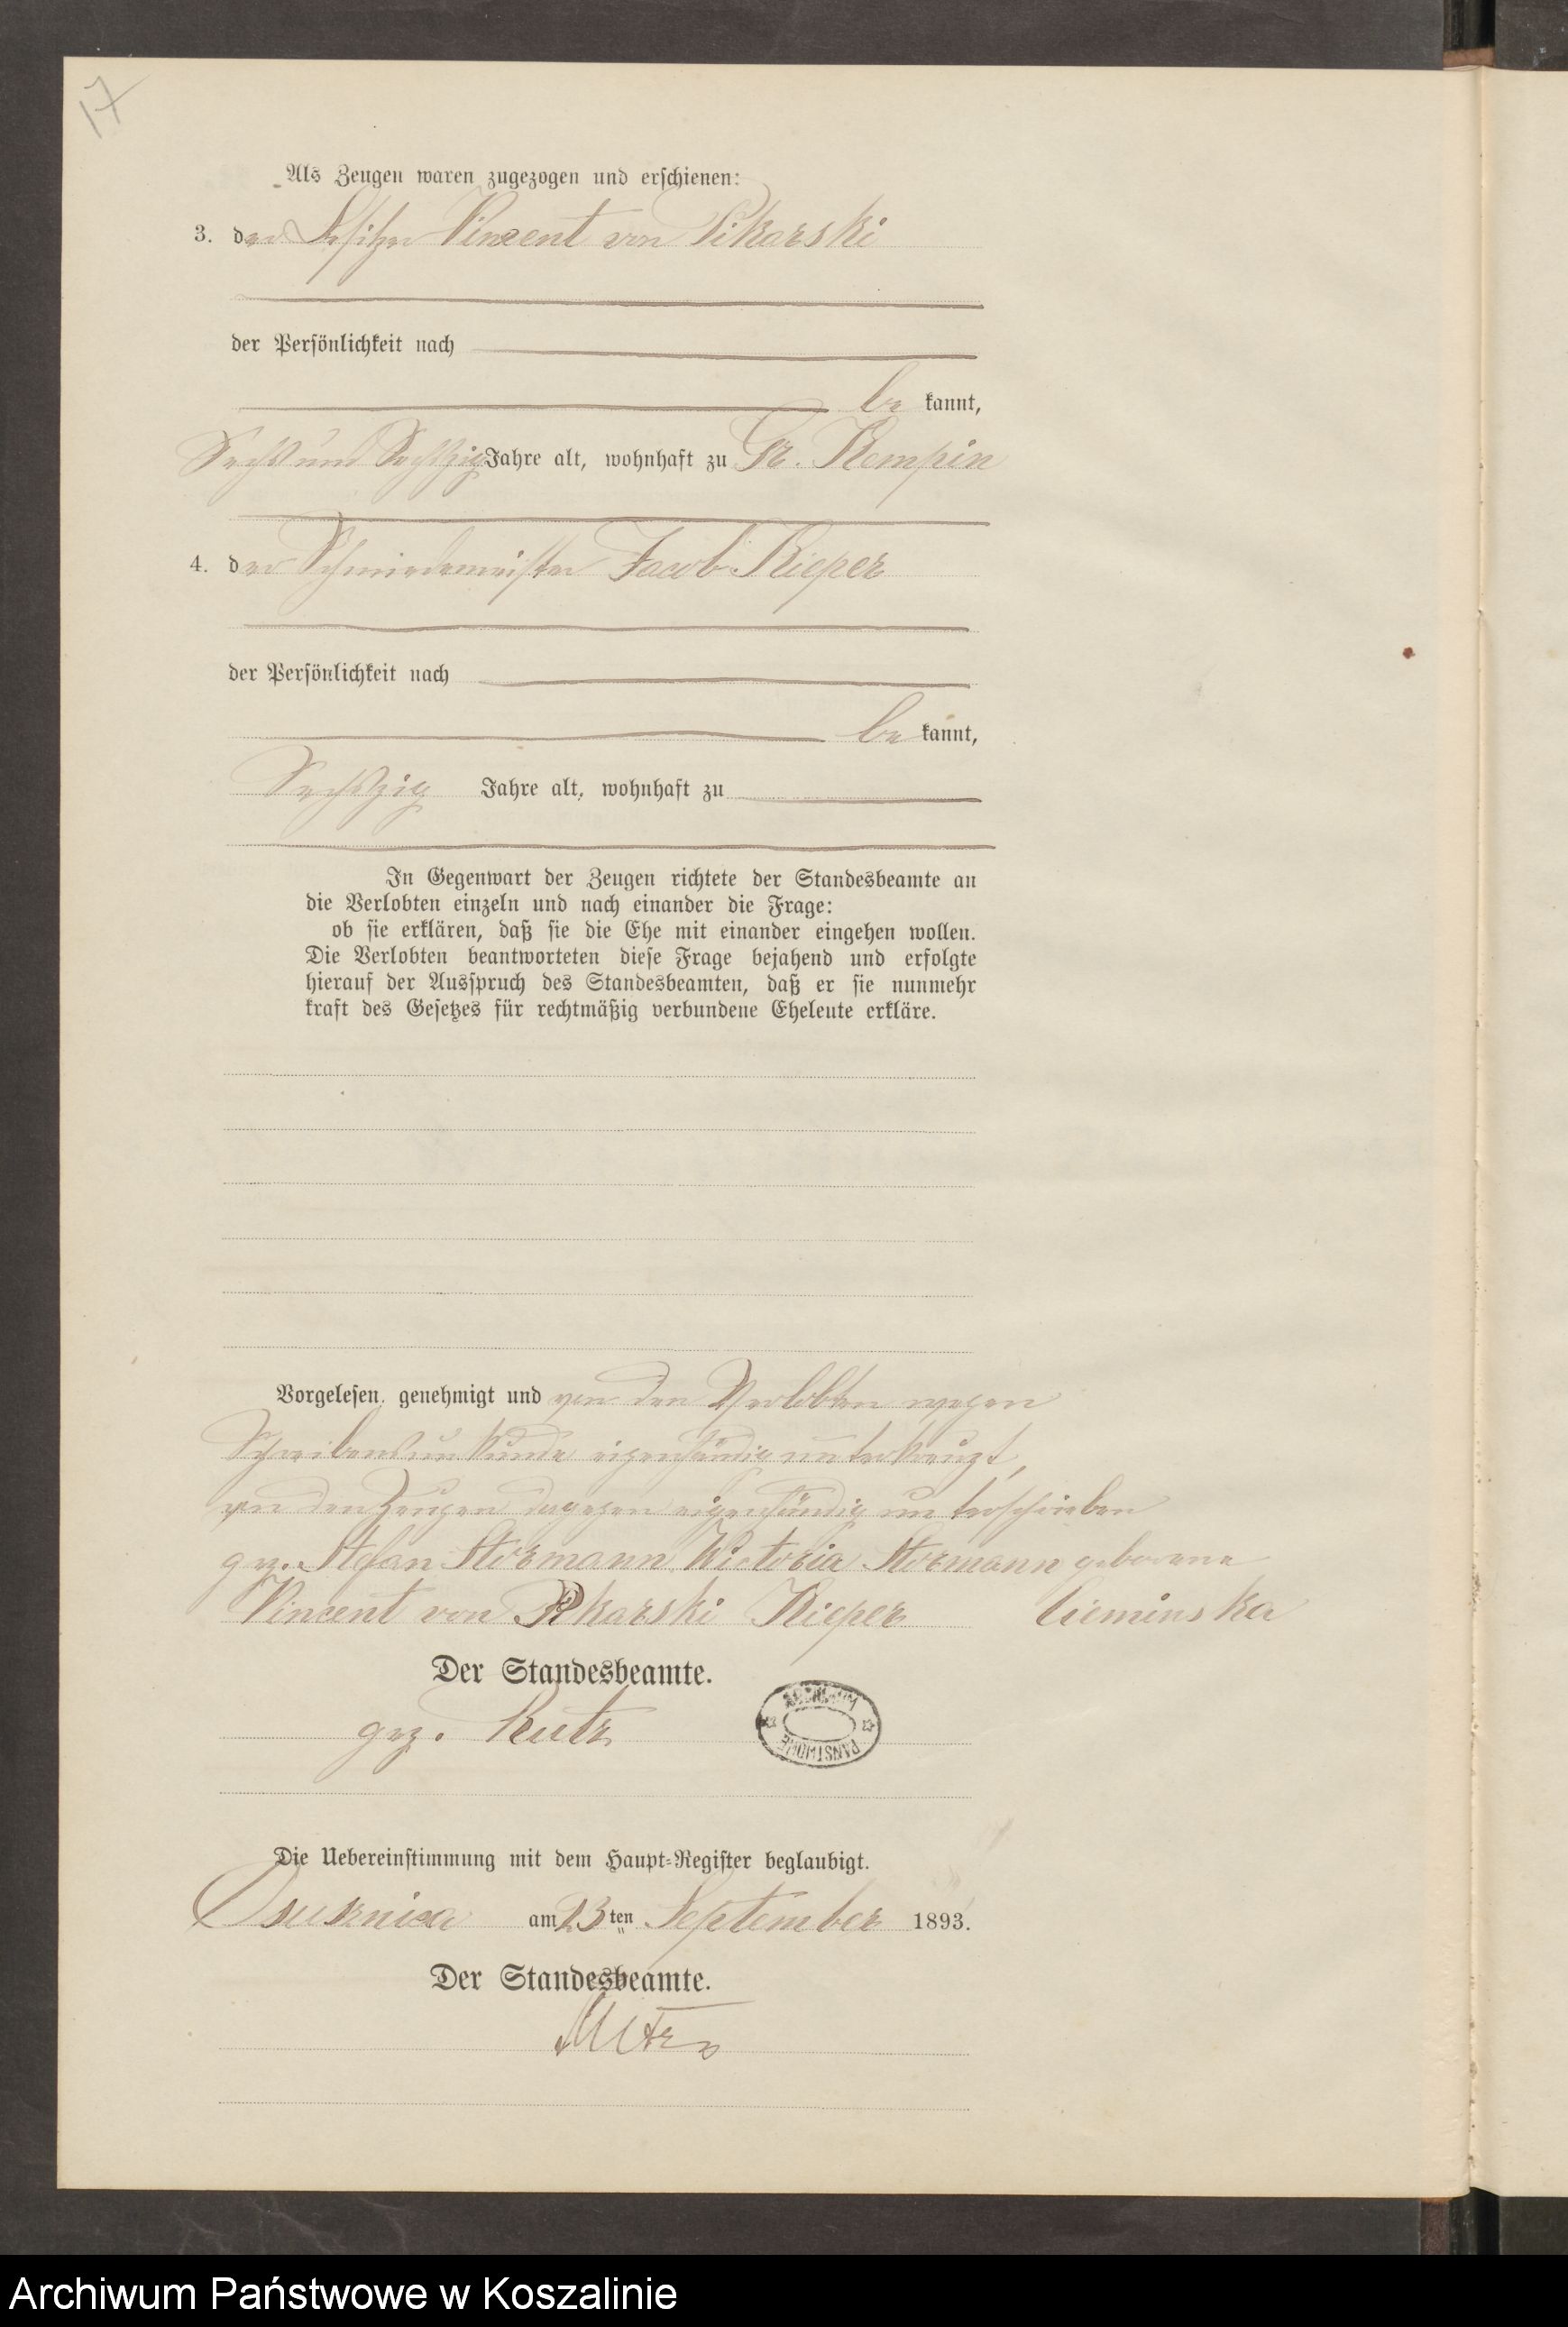 17
Als Zeugen waren zugezogen und erschienen:
3. der Besitzer Vincent von Pikarski
der Persönlichkeit nach
be kannt,
Sechs und Sechszig Jahre alt, wohnhaft zu Gr. Kempin
4. der Schmiedemeister Jacob Kieper
der Persönlichkeit nach
be kannt,
Sechszig Jahre alt, wohnhaft zu
In Gegenwart der Zeugen richtete der Standesbeamte an
die Verlobten einzeln und nach einander die Frage:
ob sie erklären, daß sie die Ehe mit einander eingehen wollen.
Die Verlobten beantworteten diese Frage bejahend und erfolgte
hierauf der Ausspruch des Standesbeamten, daß er sie nunmehr
kraft des Gesetzes für rechtmäßig verbundene Eheleute erkläre.
Vorgelesen, genehmigt und von den Verlobten wegen
Schreibensunkunde eigenhändig unterkreuzt,
von den Zeugen dagegen eigenhändig unterschrieben
gez. Stefan Stormann Victoria Stormann geborene
Vincent von Pikarski Kieper Cieminska
Der Standesbeamte.
gez. Kutz
ARCHIWUM PAŃSTWOWE
Die Uebereinstimmung mit dem Haupt-Register beglaubigt.
Osusznica am 23ten September 1893.
Der Standesbeamte.
Kutz
Archiwum Państwowe w Koszalinie